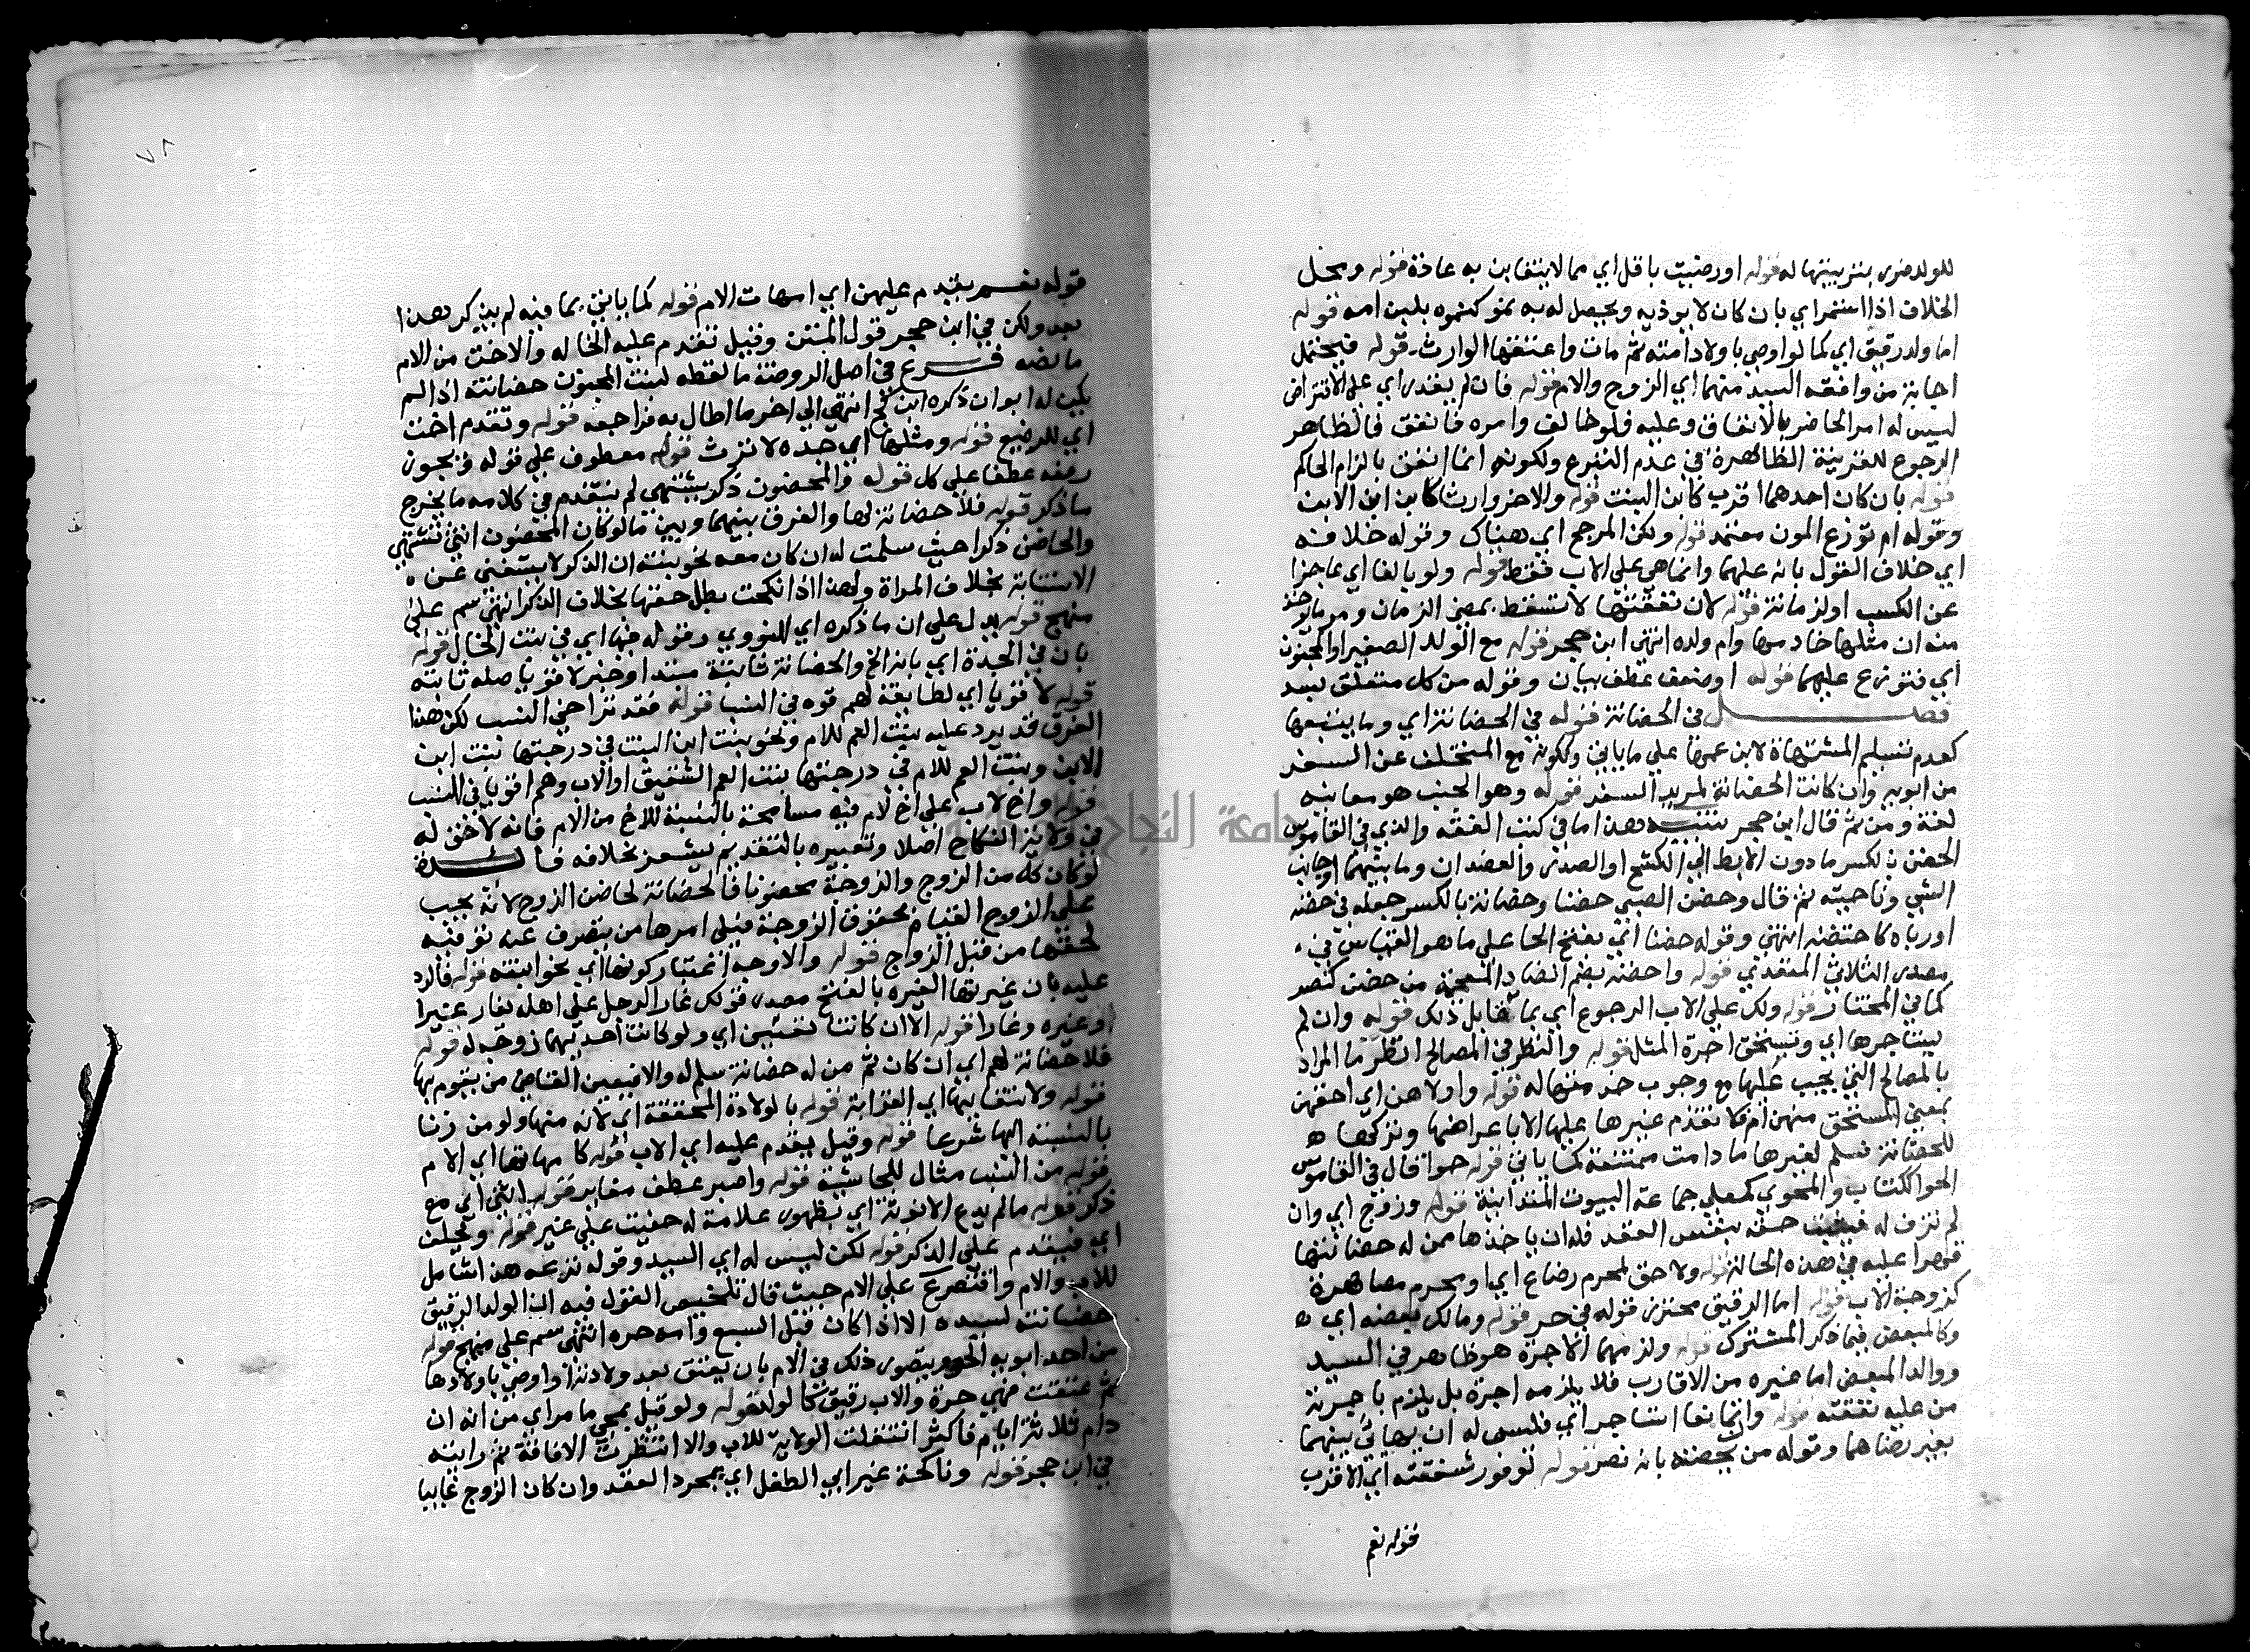 للولد ضرر بتربيتها له قوله او رضيت باقل اي مما لا يتغابن به عادة قوله ومحل
الخلاف اذا استمر اي بان كان لا يوذيه ويحصل له به نمو كنموه بلبن امه قوله
اما ولد رقيق اي كما لو اوصي باولاد امته ثم مات واعتقها الوارث قوله فيحتمل
اجابة من وافقه السيد منهما اي الزوج والام قوله فان لم يقدر اي على الاقتراض
ليس له امر الحاضر بالانفاق وعليه فلو خالف وامره فانفق فالظاهر
الرجوع للقرينة الظاهرة في عدم التبرع ولكونه انما انفق بالزام الحاكم
قوله بان كان احدهما اقرب كابن البنت قوله والاخر وارثا كابن ابن الابن
وقوله ام توزع المون معتمد قوله ولكن المرجح اي هناك وقوله خلافه
اي خلاف القول بانه عليهما وانما هي على الاب فقط قوله ولو بالغا اي عاجزا
عن الكسب او لزمانة قوله لان نفقتها لا تسقط بمضي الزمان ومر ما يوخذ
منه ان مثلها خادمها وام ولده انتهى ابن حجر قوله مع الولد الصغير او المجنون
اي فتوزع عليهما قوله او ضعف عطف بيان وقوله من كل متعلق ببعد
فصل في الحضانة قوله في الحضانة اي وما يتبعها
كعدم تسليم المشتهاة لابن عمها علي ما ياتي وكونه مع المتخلف عن السفر
من ابويه وان كانت الحضانة لمريد السفر قوله وهو الجنب هو معانيه
لغة ومن ثم قال ابن حجر تنبيه هذا ما في كتب الفقه والذي في القاموس
الحضن بالكسر ما دون الابط الي الكشح او الصدر والعضدان وما بينهما او جانب
الشي وناحيته ثم قال وحضن الصبي حضنا وحضانة بالكسر جعله في حضنه
او رباه كاحتضنه انتهى وقوله حضنا اي بفتح الحا على ما هو القياس في
مصدر الثلاثي المتعدي قوله واحضنه بضم الضاد المعجمة من حضن كنصر
كما في المختار قوله ولكن علي الاب الرجوع اي بما يقابل ذلك قوله وان لم
يستاجرها اي وتستحق اجرة المثل قوله والنظر في المصالح انظر ما المراد
بالمصالح التي يجب عليها مع وجوب خدمتها له قوله واولاهن اي احقهن
بمعني المستحق منهن ام فلا تقدم غيرها عليها الا باعراضها وتركها
للحضانة فتسلم لغيرها ما دامت ممتنعة كما ياتي قوله حوا قال في القاموس
الحوا ككتاب والمحوى كمعلى جماعة البيوت المتدانية قوله وزوج اي وان
لم تزف له فيثبت حقه بنفس العقد فله ان ياخذها ممن له حضانتها
قهرا عليه في هذه الحالة قوله ولا حق لمحرم رضاع اي او محرم مصاهرة
كزوجة الاب قوله اما الرقيق محترز قوله في حر قوله ومالك بعضه اي
وكالمبعض فيما ذكر المشترك قوله ولزمهما الاجرة هو ظاهر في السيد
ووالد المبعض اما غيره من الاقارب فلا يلزمه اجرة بل يلزم باجبرته
من عليه نفقته قوله وان تمانعا استاجر اي فليس له ان يهائي بينهما
بغير رضاهما وقوله من يحضنه بابه نصر قوله لوفور شفقته اي الاقرب
قوله نعم
قوله نعم يقدم عليهن اي امهات الام قوله كما ياتي بما فيه لم يذكر هذا
بعد ولكن في ابن حجر قول المتن وقيل تقدم عليه الخالة والاخت من الام
ما نصه فرع في اصل الروضة ما لفظه لبنت المجنون حضانته اذا لم
يكن له ابوان ذكره ابن كج انتهى الي اخر ما اطال به فراجعه قوله وتقدم اخت
اي للرضيع قوله ومثلها اي جده لا ترث قوله معطوف علي قوله ويجوز
رفعه عطفا علي كل قوله والمحضون ذكر يشتهى لم يتقدم في كلامه ما يخرج
ما ذكر قوله فلا حضانة لها والفرق بينهما وبين ما لو كان المحضون انثي تشتهي
والحاضن ذكرا حيث سلمت له ان كان معه نحو بنته ان الذكر لا يستغني عن
الاستنابة بخلاف المراة ولهذا اذا نكحت بطل حقها بخلاف الذكر انتهى سم علي
منهج قوله يدل علي ان ما ذكره اي النووي وقوله فيها اي في بنت الخال قوله
بان في الجدة اي بانه الخ والحضانة ثابتة مبتدا وخبر لا قويا صله ثابتة
قوله لا قويا اي لطايفة لهم قوه في النسب قوله فقد تراخي النسب لكن هذا
الفرق قد يرد عليه بنت العم للام ونحو بنت ابن البنت في درجتها بنت ابن
الابن وبنت العم للام في درجتها بنت العم الشقيق او الاب وهم اقويا في النسب
قوله واخ لاب علي اخ لام فيه مسامحة بالنسبة للاخ من الام فانه لا حق له
في ولاية النكاح اصلا وتعبيره بالتقديم يشعر بخلافه فائدة
لو كان كل من الزوج والزوجة محضونا فالحضانة لحاضن الزوج لانه يجب
علي الزوج القيام بحقوق الزوجة فيلي امرها من يتصرف عنه توفيه
لحقها من قبل الزواج قوله والاوجه اعتبار كونها اي نحو ابنته قوله فالرد
عليه بان غيرتها الغيره بالفتح مصدر قولك غار الرجل علي اهله يغار غيرا
او غيره وغارا قوله الا ان كانتا ثقتين اي ولو كانت احديهما زوجة له قوله
فلا حضانة لهم اي ان كان ثم من له حضانة سلم له والا فيعين القاضي من يقوم بها
قوله ولانتفا بيها اي القرابة قوله بالولادة المحققة اي لانه منها ولو من زنا
بالنسبة اليها شرعا قوله وقيل يقدم عليه اي الاب قوله كامهاتها اي الام
قوله من النسب مثال للحاشية قوله واصبر عطف مغاير قوله انثي اي مع
ذكر قوله ما لم يدع الانوثة اي بظهور علامة له خفيت علي غيره قوله ويحلف
اي فيقدم علي الذكر قوله لكن ليس له اي السيد وقوله نزعه هذا شامل
للاب والام واقتصر ع علي الام حيث قال تلخيص القول فيه ان الولد الرقيق
حضانته لسيده الا اذا كان قبل السبع وامه حره انتهى سم علي منهج قوله
من احد ابويه الحر ويتصور ذلك في الام بان يعتق بعد ولادته او اوصي باولادها
ثم عتقت فهي حرة والاب رقيق كالولد قوله ولو قيل بمجي ما مر اي من انه ان
دام ثلاثة ايام فاكثر انتقلت الولاية للاب والا انتظرت الافاقة ثم رايته
في ابن حجر قوله وناكحة غير ابي الطفل اي بمجرد العقد وان كان الزوج غايبا
٧٨
جامعة النجاح